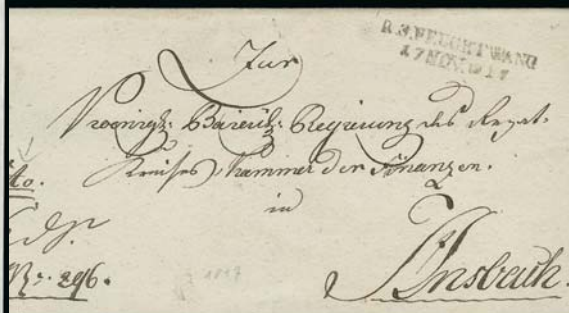 Zur
R.3.FEUCHTWANG
17 NOV. 1817
Koenigl: Baierisch: Regierung des Rezat-
Kreises, Kammer der Finanzen.
in
Ansbach.
No. 296.
1817